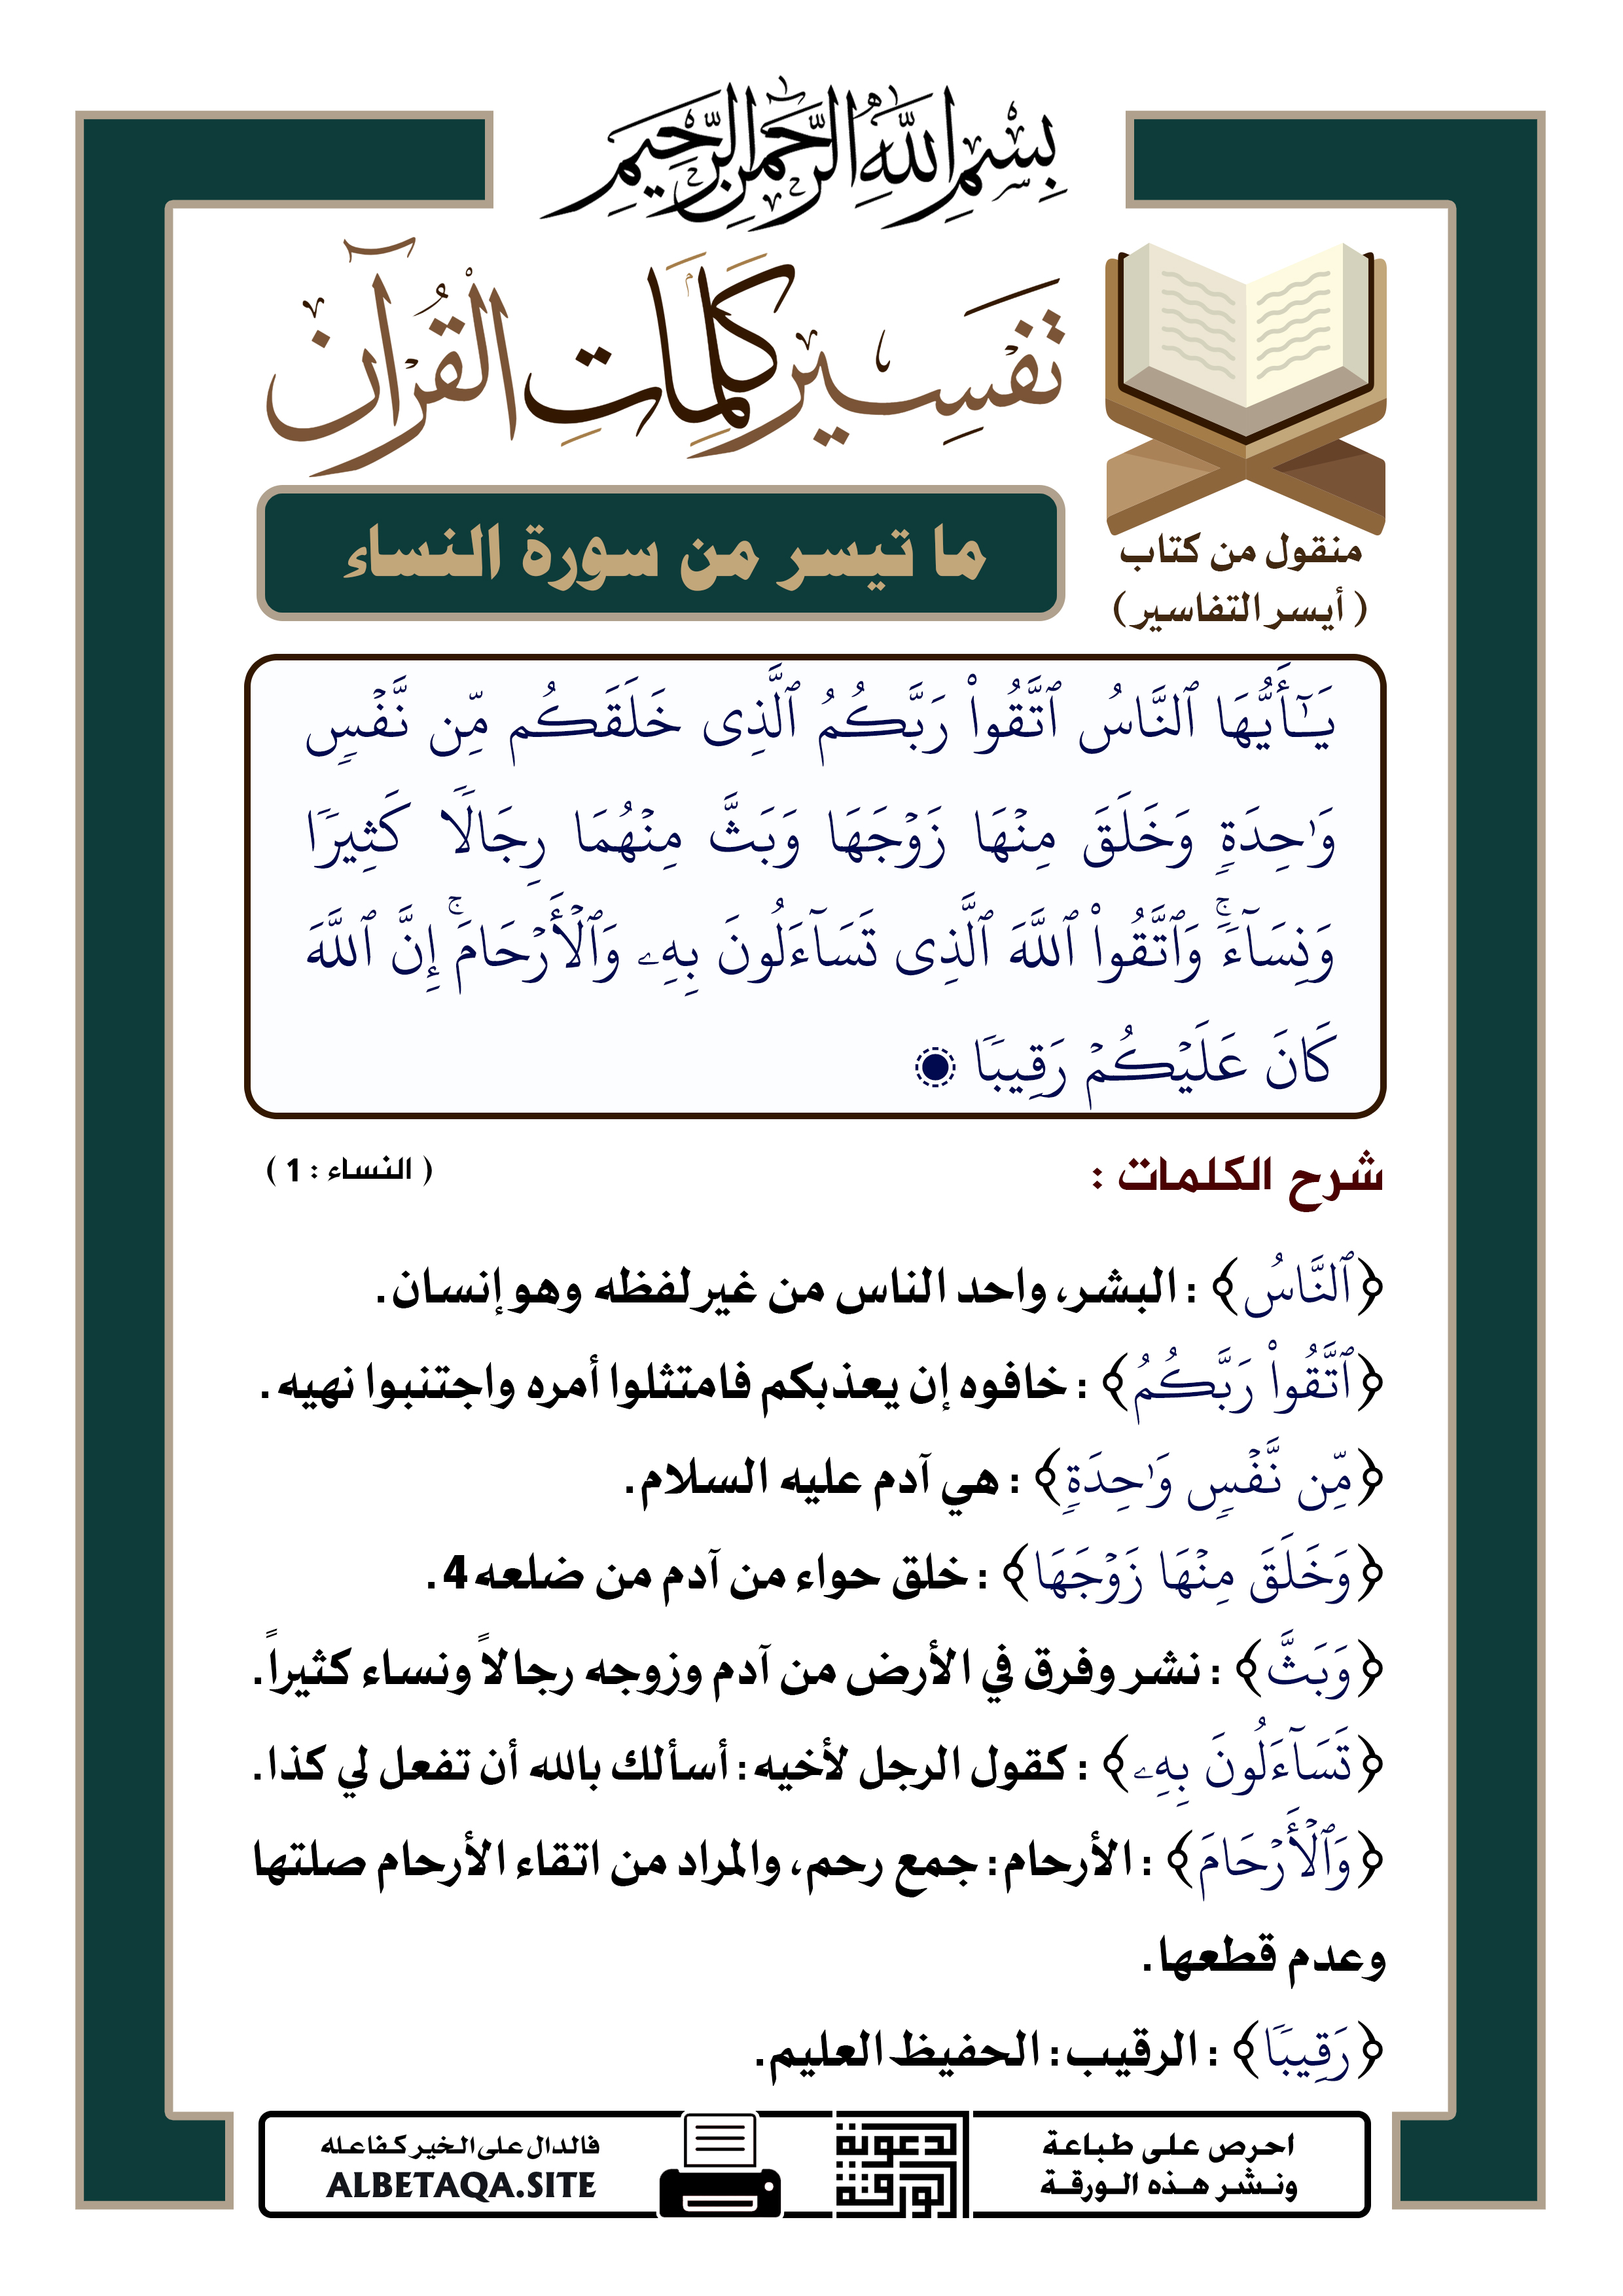 بِسْمِ اللَّهِ الرَّحْمَٰنِ الرَّحِيمِ
تَفْسِير كَلِمَاتِ القُرْآن
منقول من كتاب
( أيسر التفاسير )
ما تيسر من سورة النساء
يَـٰٓأَيُّهَا ٱلنَّاسُ ٱتَّقُوا۟ رَبَّكُمُ ٱلَّذِى خَلَقَكُم مِّن نَّفْسٍۢ
وَٰحِدَةٍۢ وَخَلَقَ مِنْهَا زَوْجَهَا وَبَثَّ مِنْهُمَا رِجَالًۭا كَثِيرًۭا
وَنِسَآءًۭ ۚ وَٱتَّقُوا۟ ٱللَّهَ ٱلَّذِى تَسَآءَلُونَ بِهِۦ وَٱلْأَرْحَامَ ۚ إِنَّ ٱللَّهَ
كَانَ عَلَيْكُمْ رَقِيبًۭا
شرح الكلمات :
( النساء : 1 )
﴿ٱلنَّاسُ﴾ : البشر، واحد الناس من غير لفظه وهو إنسان.
﴿ٱتَّقُوا۟ رَبَّكُمُ﴾ : خافوه إن يعذبكم فامتثلوا أمره واجتنبوا نهيه.
﴿مِّن نَّفْسٍۢ وَٰحِدَةٍۢ﴾ : هي آدم عليه السلام.
﴿وَخَلَقَ مِنْهَا زَوْجَهَا﴾ : خلق حواء من آدم من ضلعه4.
﴿وَبَثَّ﴾ : نشر وفرق في الأرض من آدم وزوجه رجالاً ونساء كثيراً.
﴿تَسَآءَلُونَ بِهِۦ﴾ : كقول الرجل لأخيه: أسألك بالله أن تفعل لي كذا.
﴿وَٱلْأَرْحَامَ﴾ : الأرحام: جمع رحم، والمراد من اتقاء الأرحام صلتها
وعدم قطعها.
﴿رَقِيبًۭا﴾ : الرقيب: الحفيظ العليم.
احرص على طباعة
ونشر هذه الورقة
الورقة
الدعوية
فالدال على الخير كفاعله
ALBETAQA.SITE